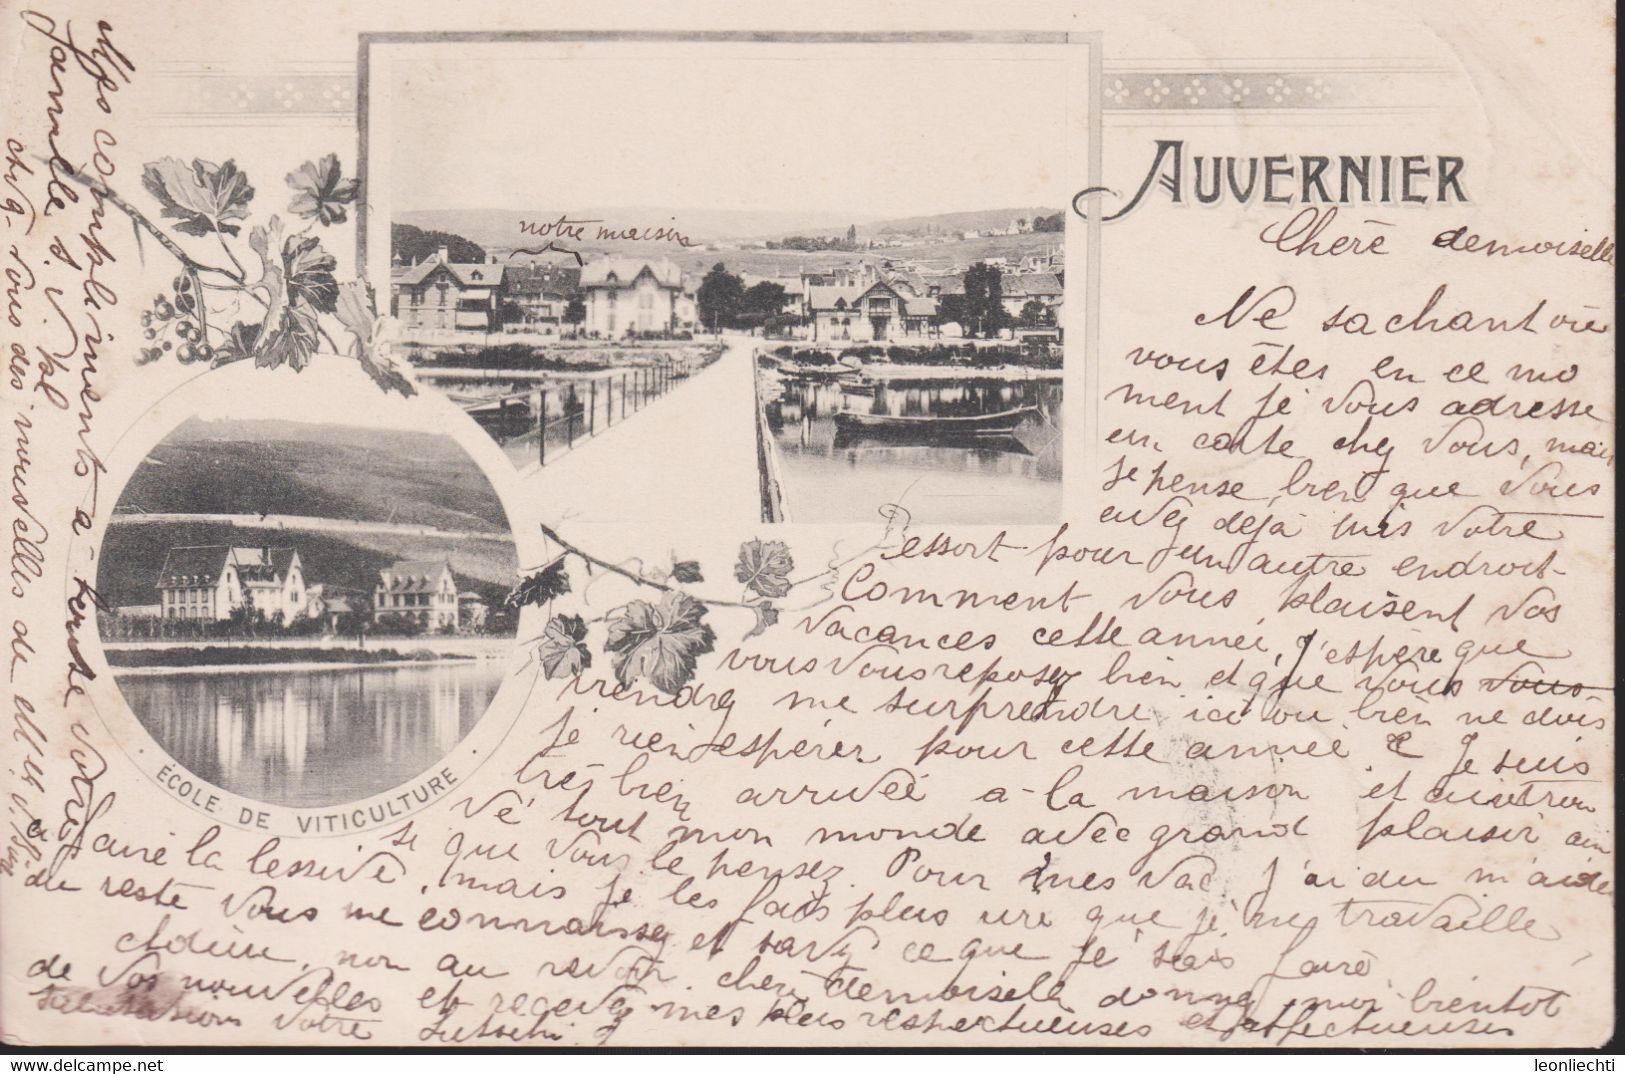 AUVERNIER
notre maison
ÉCOLE DE VITICULTURE
Chère demoiselle
Ne sachant où
vous êtes en ce mo
ment je vous adresse
un carte chez vous, mais
je pense bien que vous
avez déjà pris votre
essort pour un autre endroit
Comment vous plaisent vos
vacances cette année, j'espère que
vous vous reposez bien et que vous vous
viendrez me surprendre ici ou bien ne dois
je rien espérer pour cette année? Je suis
très bien arrivée à la maison et ai trou
vé tout mon monde avec grand plaisir ain
si que vous le pensez. Pour mes vac. j'ai du m'aider
faire la lessive, mais je les fais plus rire que je ne travaille
du reste vous me connaissez et savez ce que je sais faire
Adieu, non au revoir chère demoiselle donnez moi bientot
de vos nouvelles et recevez mes plus respectueuses et affectueuses
salutations votre
Mes compliments à toute votre
famille s. v. pl.
Avez-vous des nouvelles de